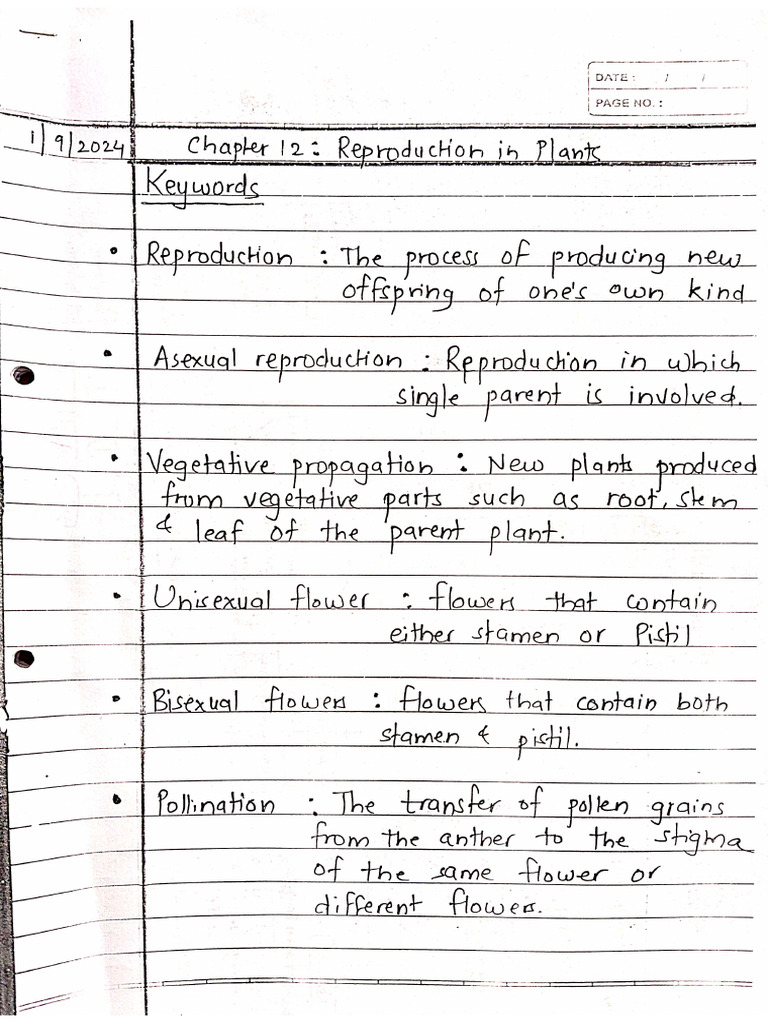 DATE : / /
PAGE NO. :
1/9/2024 Chapter 12: Reproduction in Plants
Keywords
• Reproduction : The process of producing new
offspring of one's own kind
• Asexual reproduction : Reproduction in which
single parent is involved.
• Vegetative propagation : New plants produced
from vegetative parts such as root, stem
& leaf of the parent plant.
• Unisexual flower : flowers that contain
either stamen or Pistil
• Bisexual flowers : flowers that contain both
stamen & pistil.
• Pollination : The transfer of pollen grains
from the anther to the stigma
of the same flower or
different flowers.